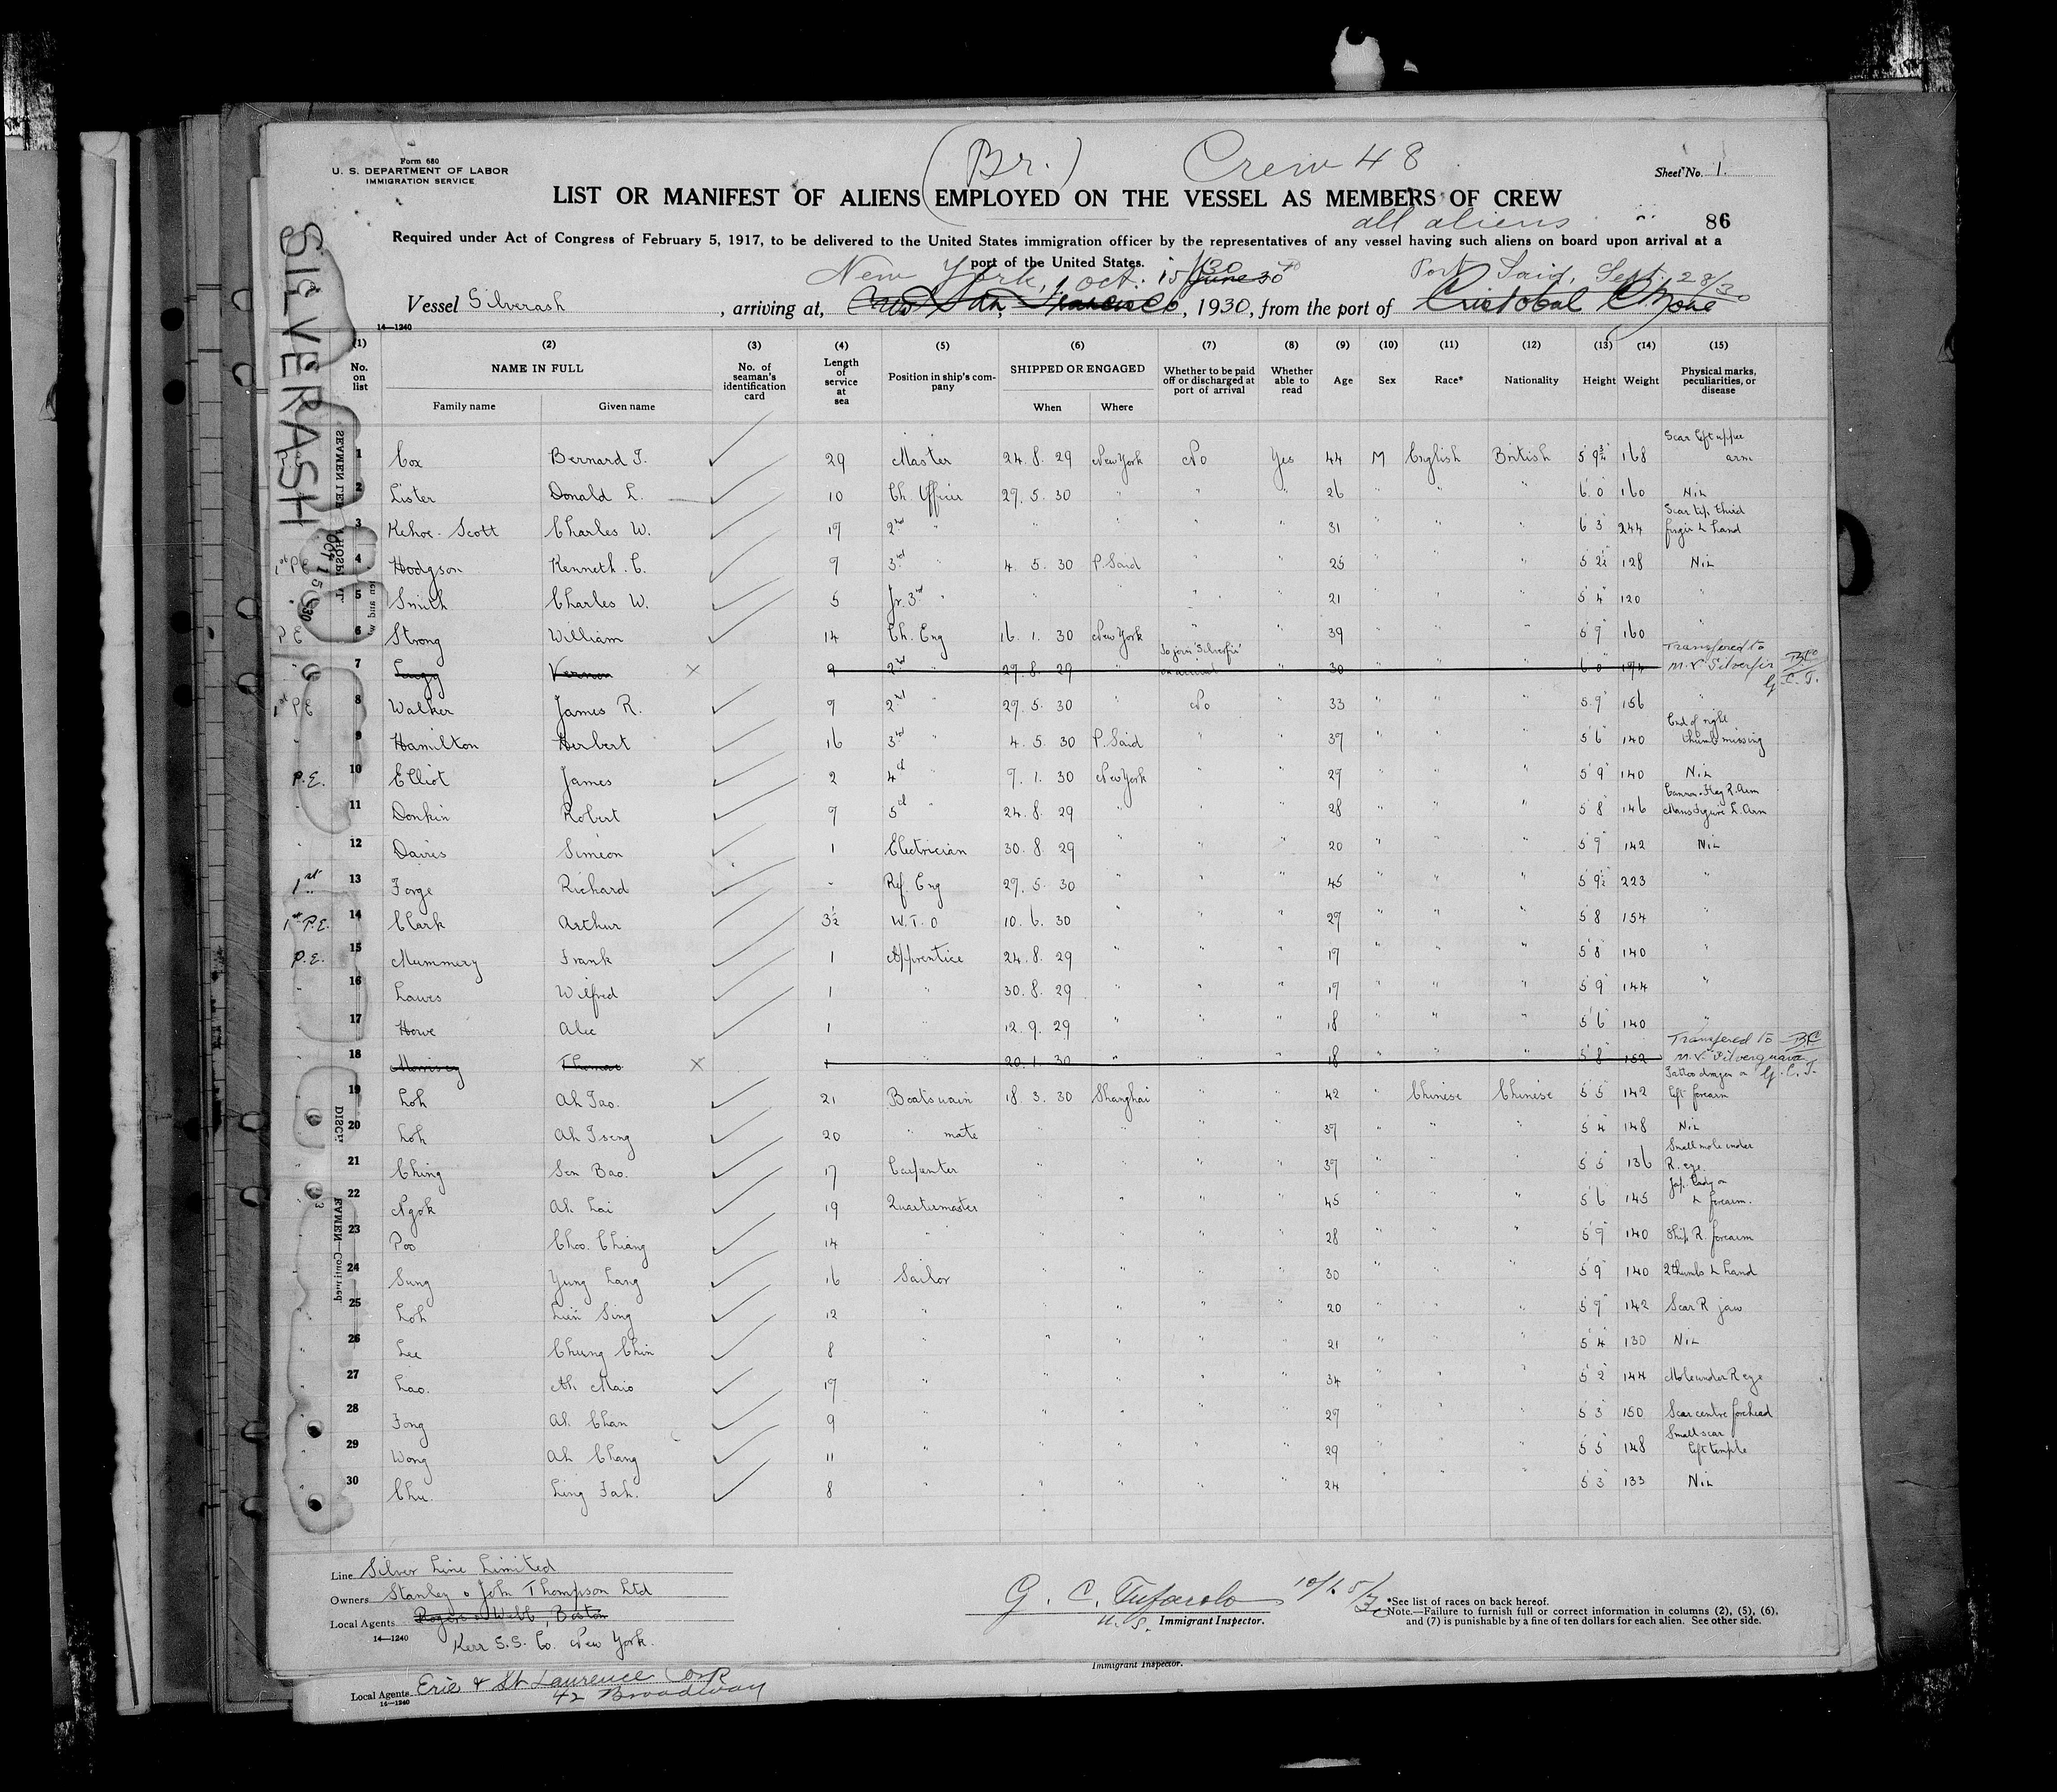 Form 680
U. S. DEPARTMENT OF LABOR
IMMIGRATION SERVICE
(Br.)
Crew 48
Sheet No. 1.
LIST OR MANIFEST OF ALIENS EMPLOYED ON THE VESSEL AS MEMBERS OF CREW
all aliens
86
Required under Act of Congress of February 5, 1917, to be delivered to the United States immigration officer by the representatives of any vessel having such aliens on board upon arrival at a
port of the United States.
New York, Oct. 15/30 Port Said, Sept. 28/30
Vessel Silverash, arriving at, San Francisco, 1930, from the port of Cristobal C Zone
14—1240
SILVERASH
(1) (2) (3) (4) (5) (6) (7) (8) (9) (10) (11) (12) (13) (14) (15)
No. on list NAME IN FULL No. of seaman's identification card Length of service at sea Position in ship's company SHIPPED OR ENGAGED Whether to be paid off or discharged at port of arrival Whether able to read Age Sex Race* Nationality Height Weight Physical marks, peculiarities, or disease
Family name Given name When Where
1 Cox Bernard J. 29 Master 24. 8. 29 New York No Yes 44 M English British 5 9¾ 168 Scar left upper arm
2 Lister Donald L. 10 Ch. Officer 29. 5. 30 " " " 26 " " " 6 0 160 Nil
3 Kehoe-Scott Charles W. 17 2nd " " " " " 31 " " " 6 3 244 Scar tip third finger L hand
1st PE 4 Hodgson Kenneth C. 9 3rd " 4. 5. 30 P. Said " " 25 " " " 5 2½ 128 Nil
5 Smith Charles W. 5 Jr. 3rd " " " " " 21 " " " 5 4 120 "
PE 6 Strong William 14 Ch. Eng 16. 1. 30 New York " " 39 " " " 5 9 160 "
7 Lugg Vernon X 9 2nd " 29. 8. 29 " To join "Silverfir" on arrival " 30 " " " 6 0 174 Transfered to M.V. Silverfir G.C.T.
1st PE 8 Walker James R. 9 2nd " 29. 5. 30 " No " 33 " " " 5 9 156 "
9 Hamilton Herbert 16 3rd " 4. 5. 30 P. Said " " 37 " " " 5 6 140 End of right thumb missing
P.E. 10 Elliot James 2 4th " 9. 1. 30 New York " " 29 " " " 5 9 140 Nil
11 Donkin Robert 9 5th " 24. 8. 29 " " " 28 " " " 5 8 146 Cannon & Flag R. Arm Mans figure L. Arm
12 Davies Simeon 1 Electrician 30. 8. 29 " " " 20 " " " 5 9 142 Nil
1st 13 Forge Richard - Ref. Eng 29. 5. 30 " " " 45 " " " 5 9½ 223 "
1st P.E. 14 Clark Arthur 3½ W. T. O 10. 6. 30 " " " 29 " " " 5 8 154 "
P.E. 15 Mummery Frank 1 Apprentice 24. 8. 29 " " " 17 " " " 5 8 140 "
16 Lawes Wilfred 1 " 30. 8. 29 " " " 17 " " " 5 9 144 "
17 Howe Alec 1 " 12. 9. 29 " " " 18 " " " 5 6 140 "
18 Morrisey Thomas X 1 " 20. 1. 30 " " " 18 " " " 5 8 152 Transfered to M.V. Silverguava G.C.T.
19 Loh Ah Tao. 21 Boatswain 18. 3. 30 Shanghai " " 42 " Chinese Chinese 5 5 142 Tattoo dragon on left forearm
20 Loh Ah Tseng 20 " mate " " " " 37 " " " 5 4 148 Nil
21 Ching Sen Bao. 17 Carpenter " " " " 37 " " " 5 5 136 Small mole under R. eye.
22 Ngok Ah Lai 19 Quartermaster " " " " 45 " " " 5 6 145 Jap. Lady on L forearm.
23 Poo Choo. Chiang 14 " " " " " 28 " " " 5 9 140 Ship R. forearm
24 Sung Yung Lang 16 Sailor " " " " 30 " " " 5 9 140 2 thumbs L hand
25 Loh Lien Sing 12 " " " " " 20 " " " 5 9 142 Scar R jaw
26 Lee Chung Chin 8 " " " " " 21 " " " 5 4 130 Nil
27 Lao. Ah. Maio 17 " " " " " 34 " " " 5 2 144 Mole under R eye
28 Fong Ah. Chan 9 " " " " " 27 " " " 5 3 150 Scar centre forehead
29 Wong Ah Chang 11 " " " " " 29 " " " 5 5 148 Small scar left temple
30 Chu. Ling Fah. 8 " " " " " 24 " " " 5 3 133 Nil
Line Silver Line Limited
Owners Stanley & John Thompson Ltd
Local Agents Rogers & Webb, Boston
14—1240
Kerr S.S. Co. New York.
G. C. Tufarolo 10/15/30
U.S. Immigrant Inspector.
*See list of races on back hereof.
Note.—Failure to furnish full or correct information in columns (2), (5), (6),
and (7) is punishable by a fine of ten dollars for each alien. See other side.
Immigrant Inspector.
Local Agents Erie & St Laurence Corp
14—1240
42 Broadway